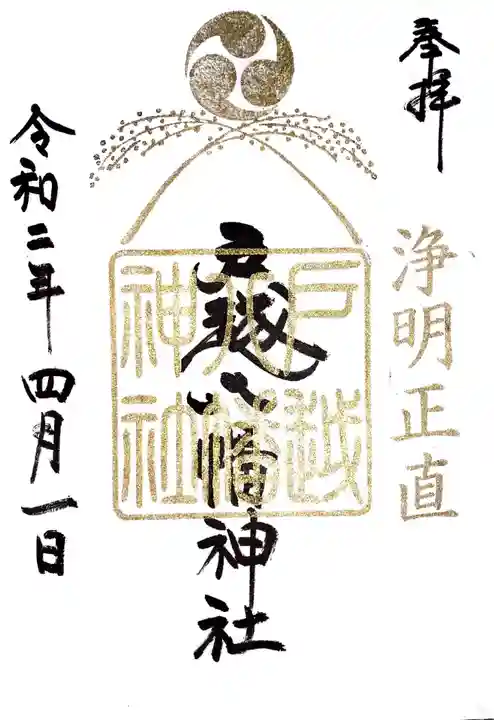 奉拝
浄明正直
戸越八幡神社
戸越八幡神社
令和二年四月一日